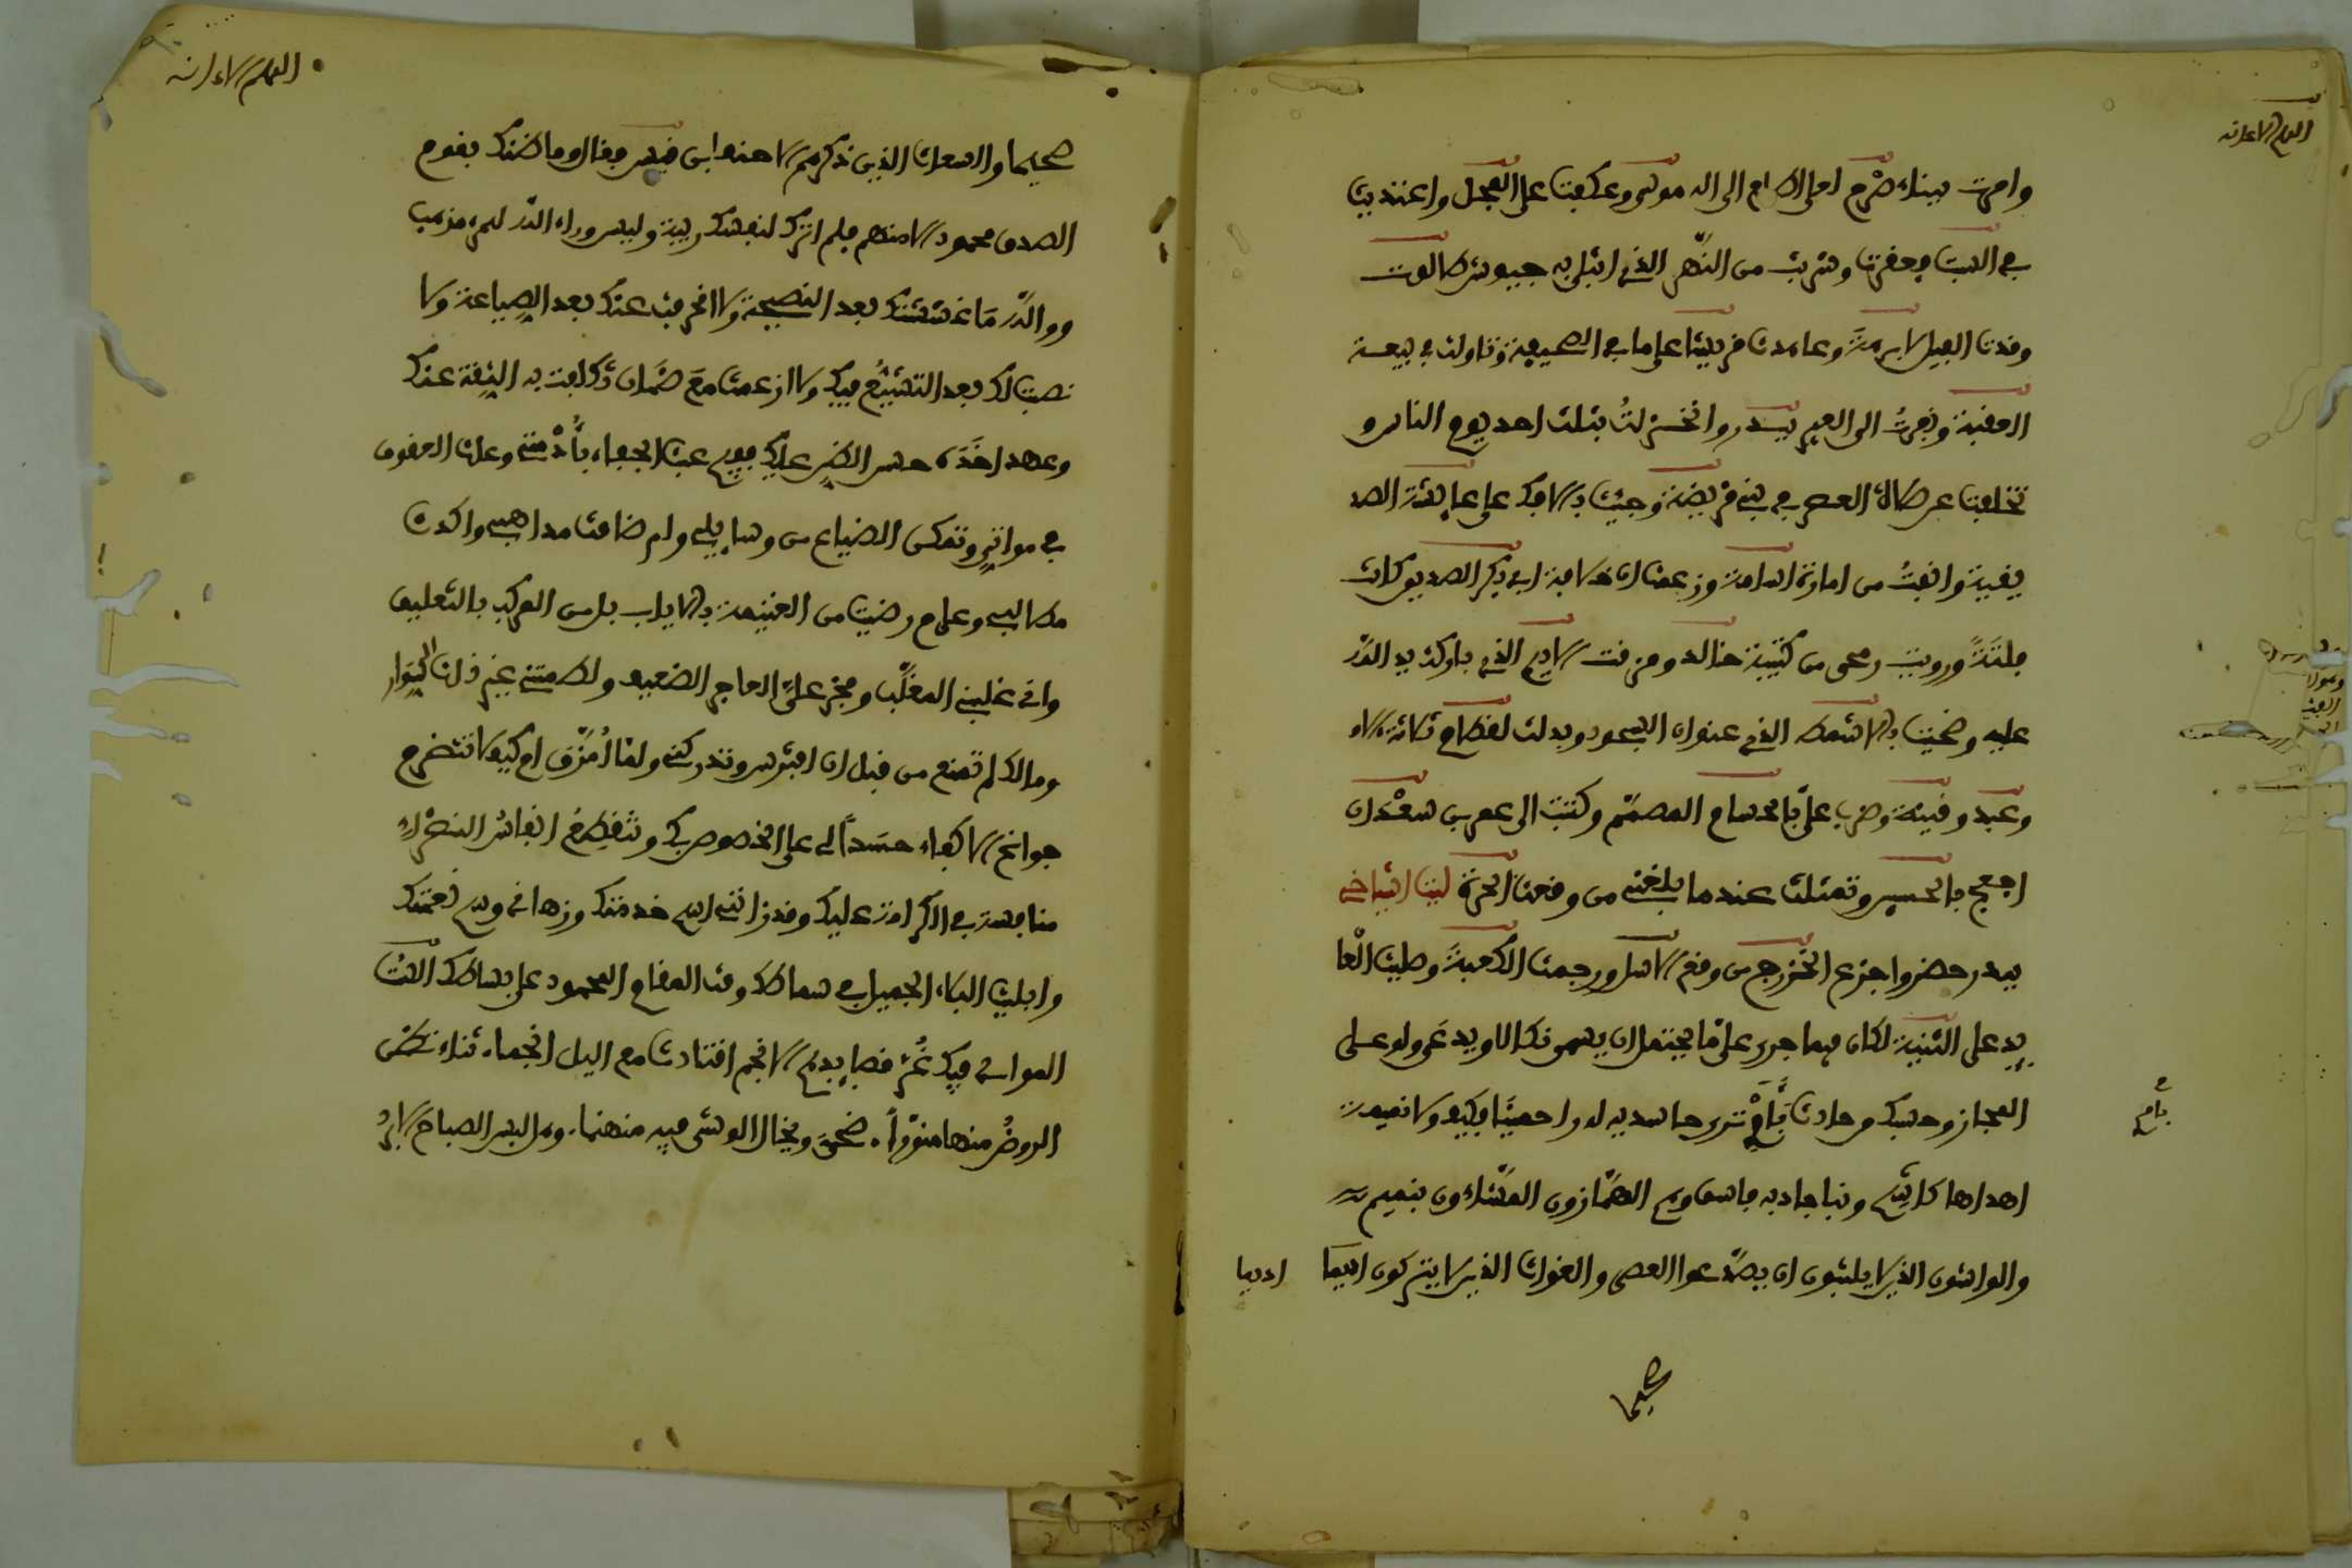 العلم الاعرانه
وامرت ببناء صرح لعلى اطلع الى اله موسى وعكفت على العجل واعتديت
في السبت فعقرت وشربت من النهر الذي ابتلي به جيوش طالوت
وقدت الفيل لابرهة وعاهدت قريشا على ما في الصحيفة وتاولت في بيعة
العقبة ونفرت الى العير ببدر وانخزلت بثلث احد يوم الناس و
تخلفت عن صلاة العصر في بني قريضة وجئت بالافك على عايشة الصد
يقية وانفت من امارة اسامة وزعمت ان خلافة ابي بكر الصديق كانت
فلتة ورويت رمحي من كتيبة خالد ومزقت الاديم الذي باركت يد الله
عليه وضحيت بالاشمط الذي عنوان السجود وبدلت لقطام ثلاثة الاف
وعبد وقينة وضرب علي بالحسام المصمم وكتبت الى عمر بن سعد ان
اجعجع بالحسين وتمثلت عندما بلغني من وقعت الحرة ليت اشياخي
ببدر حضروا جزع الخزرج من وقع الاسل ورجمت الكعبة وصلبت العا
يد على الثنية لكان فيما جرى علي ما يحتمل ان يسمى نكالا ويدعى ولو على
المجاز وحسبك من حادث بامرئ ترى حاسديه له راحمينا فكيف ولا نميمة
اهداها كاشح ونبا جاء به فاسق وهم الهمازون المشاءون بنميم
والواشون الذين لا يلبثون ان يصدعوا العصى والغواة الذين لا يتركون اديما
اديما
صحيحا
العلم الاعرانه
صحيحا والسعات الذين ذكرهم الاحنف ابن قيس فقال وما ضنك بقوم
الصدق محمود الا منهم فلم اترك لنفسك ريبة وليس وراء الله للمرء مذهب
ووالله ما غششتك بعد النصيحة ولا انحرفت عنك بعد الصياغة ولا
نصبت لك بعد التشيع فيك ولا ازمعت مع ضمان تكلفت به الثقة عنك
وعهد اخذه حسن الظن عليك ففيم عبث الجفاء باذمتي وعاث العقوق
في مواتي وتمكن الضياع من وسايلي ولم ضاقت مذاهبي واكدت
مطالبي وعلام رضيت من الغنيمة بالاياب بل من المركب بالتعليق
واني غلبني المغلب وفخر علي العاجز الضعيف ولطمتني غير ذات السوار
ومالك لم تمنع من قبل ان افترس وتدركني ولما امزق ام كيف لا تتضرم
جوانح الاكفاء حسدا لي على الخصوص بك وتتقطع انفاس النضراء
منافسة في الكرامة عليك وقد زانني اسم خدمتك وزهاني وسم نعمتك
وابليت البلاء الجميل في سماطك وقمت المقام المحمود على بساطك الست
الموالي فيك غر قصايدي الانجم اقتادت مع اليل انجما ثناء تظن
الروض منها منورا ضحى ويخال الوشي فيه منمنما وهل لبس الصباح الا برد